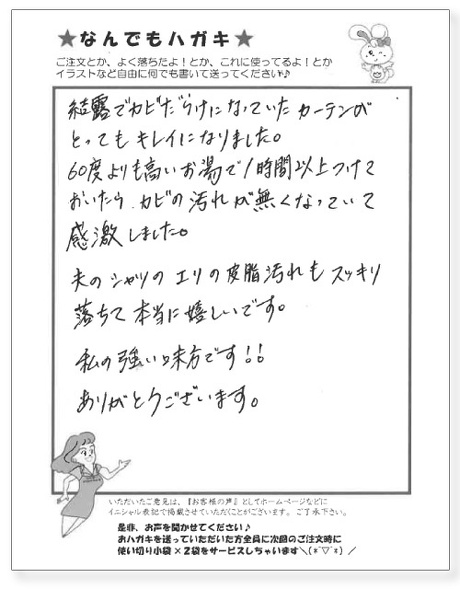 ★なんでもハガキ★
ご注文とか、よく落ちたよ！とか、これに使ってるよ！とか
イラストなど自由に何でも書いて送ってください♪
結露でカビだらけになっていたカーテンが
とってもキレイになりました。
60度よりも高いお湯で1時間以上つけて
おいたら、カビの汚れが無くなっていて
感激しました。
夫のシャツのエリの皮脂汚れもスッキリ
落ちて本当に嬉しいです。
私の強い味方です!!
ありがとうございます。
いただいたご意見は、『お客様の声』としてホームページなどに
イニシャル表記で掲載させていただくことがございます。ご了承下さい。
是非、お声を聞かせてください♪
おハガキを送っていただいた方全員に次回のご注文時に
使い切り小袋×2袋をサービスしちゃいます＼(*ˊ▽ˋ*)／